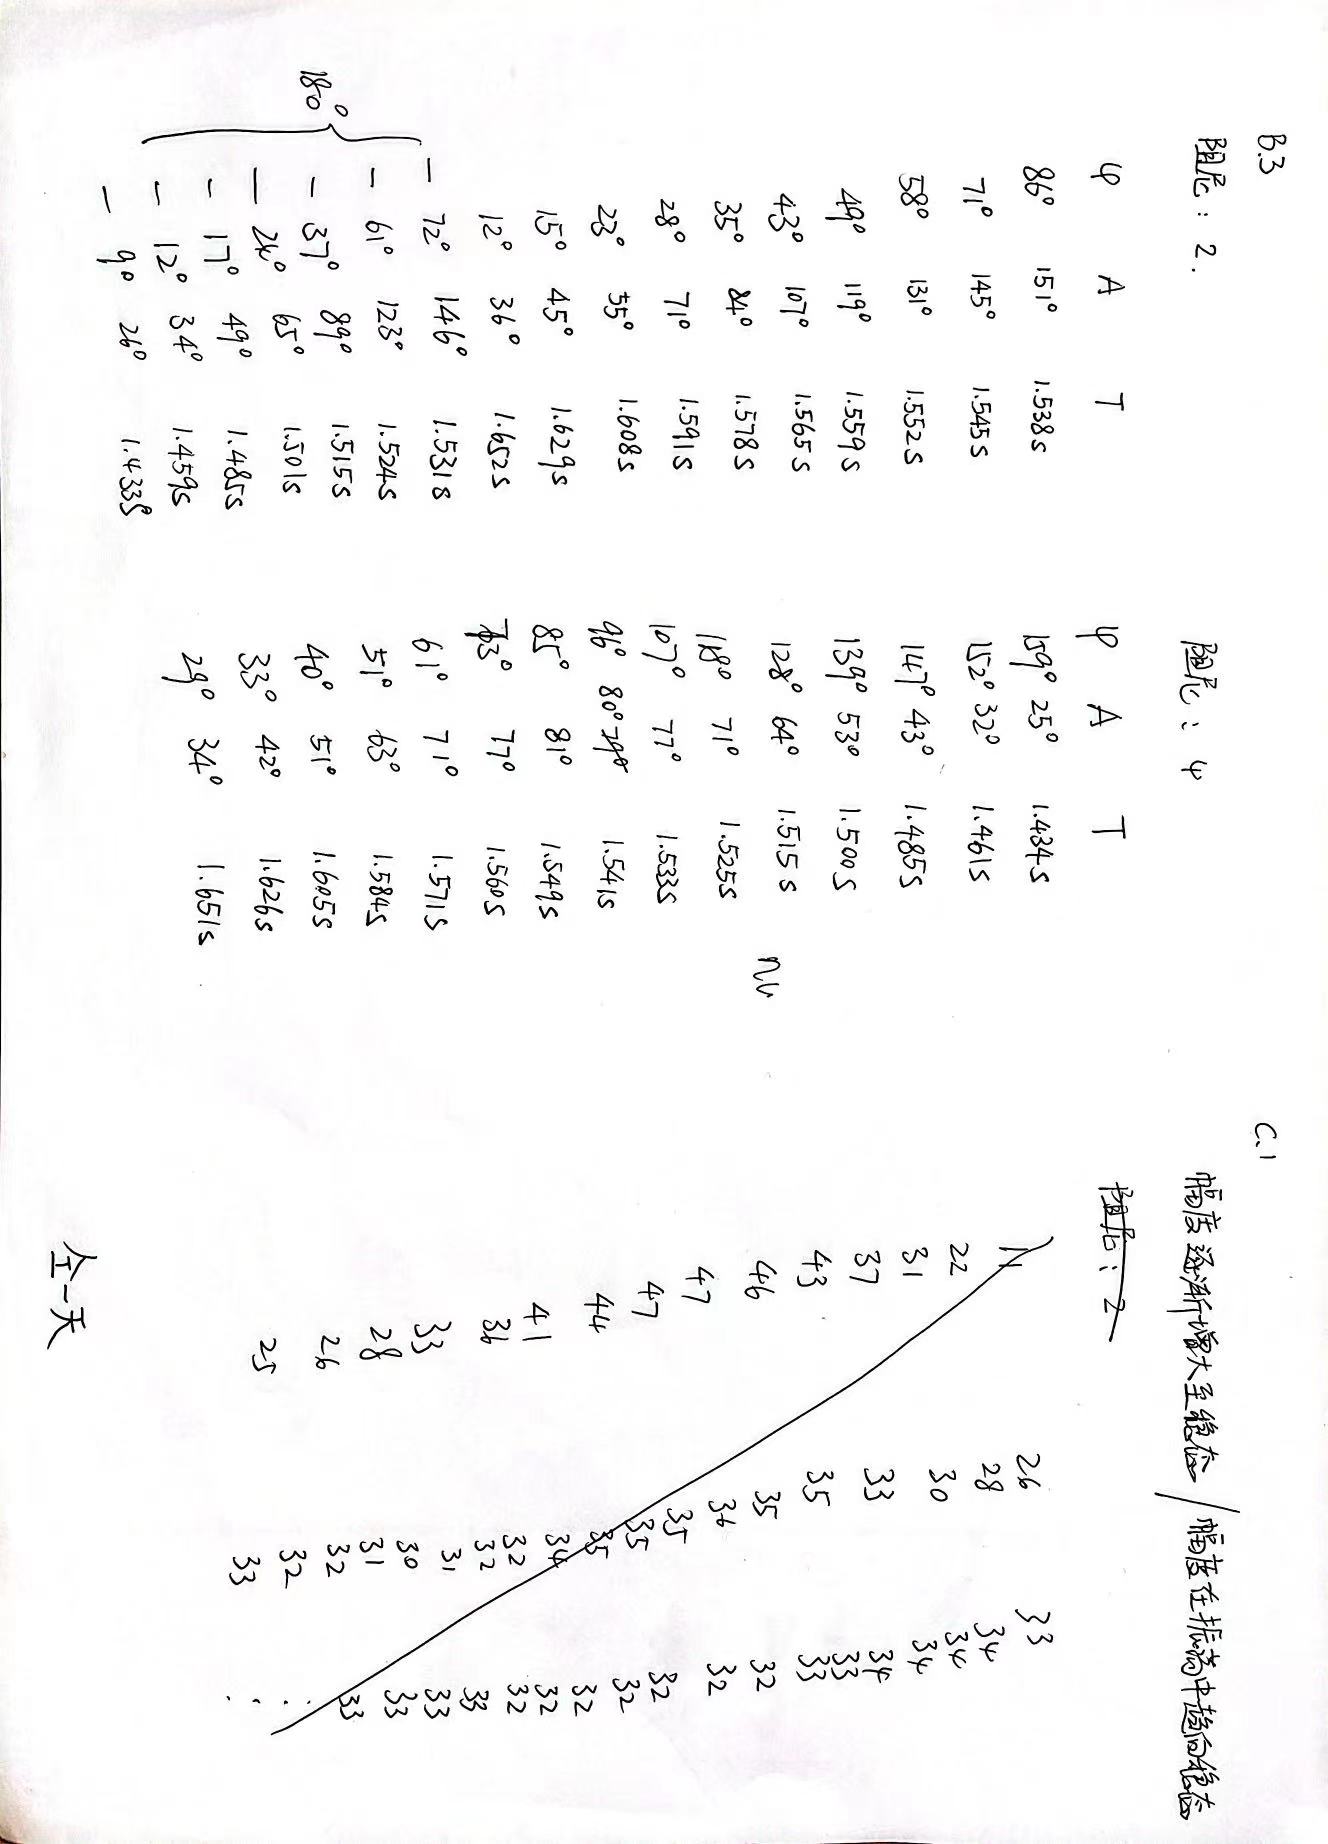 B.3
阻尼：2.
φ A T
86° 151° 1.538s
71° 145° 1.545s
58° 131° 1.552s
49° 119° 1.559s
43° 107° 1.565s
35° 84° 1.578s
28° 71° 1.591s
23° 55° 1.608s
15° 45° 1.629s
12° 36° 1.652s
180°
- 72° 146° 1.531s
- 61° 123° 1.524s
- 37° 89° 1.515s
- 24° 65° 1.501s
- 17° 49° 1.485s
- 12° 34° 1.459s
- 9° 26° 1.433s
阻尼：4
φ A T
159° 25° 1.434s
152° 32° 1.461s
147° 43° 1.485s
139° 53° 1.500s
128° 64° 1.515s
118° 71° 1.525s
107° 77° 1.533s
96° 80° 1.541s
85° 81° 1.549s
73° 77° 1.560s
61° 71° 1.571s
51° 63° 1.584s
40° 51° 1.605s
33° 42° 1.626s
29° 34° 1.651s
C.1
幅度逐渐增大至稳态/幅度在振荡中趋向稳态
阻尼：2
11
22
31
37
43
46
47
47
44
41
36
33
28
26
25
26
28
30
33
35
35
36
35
35
35
34
32
32
31
30
31
32
32
33
33
34
34
34
34
33
33
32
32
32
32
32
32
32
33
33
33
33
...
仝一天